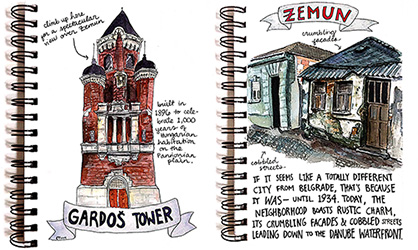 climb up here
for a spectacular
view over Zemun
built in
1896 to cele-
brate 1,000
years of
Hungarian
habitation
on the
Pannonian
plain.
GARDOŠ TOWER
ZEMUN
crumbling
facades
cobbled
streets
IF IT SEEMS LIKE A TOTALLY DIFFERENT
CITY FROM BELGRADE, THAT'S BECAUSE
IT WAS – UNTIL 1934. TODAY, THE
NEIGHBORHOOD BOASTS RUSTIC CHARM,
ITS CRUMBLING FACADES & COBBLED STREETS
LEADING DOWN TO THE DANUBE WATERFRONT.